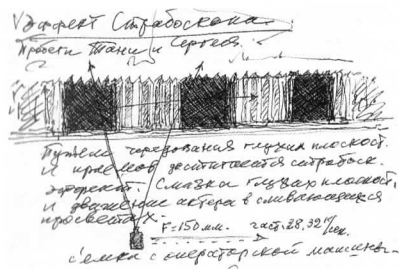 Эффект Стробоскопа.
Пробеги Тани и Сергея.
Путем чередования глухих плоскост.
и проемов достигается стробоск.
эффект. Смазка глухих плоскост.
и движение актера в сливающихся
просветах.
F=150мм. част. 28, 32 к/сек.
съемка с операторской машины.